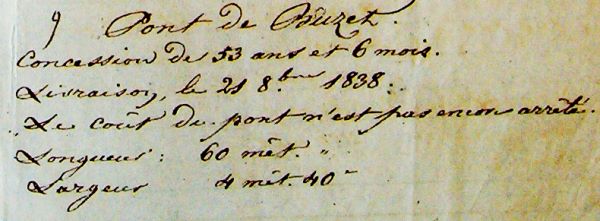 9 Pont de Buzet.
Concession de 53 ans et 6 mois.
Livraison, le 21 8.bre 1838.
Le coût du pont n'est pas encor arrêté.
Longueur : 60 mèt. "
Largeur 4 mèt. 40